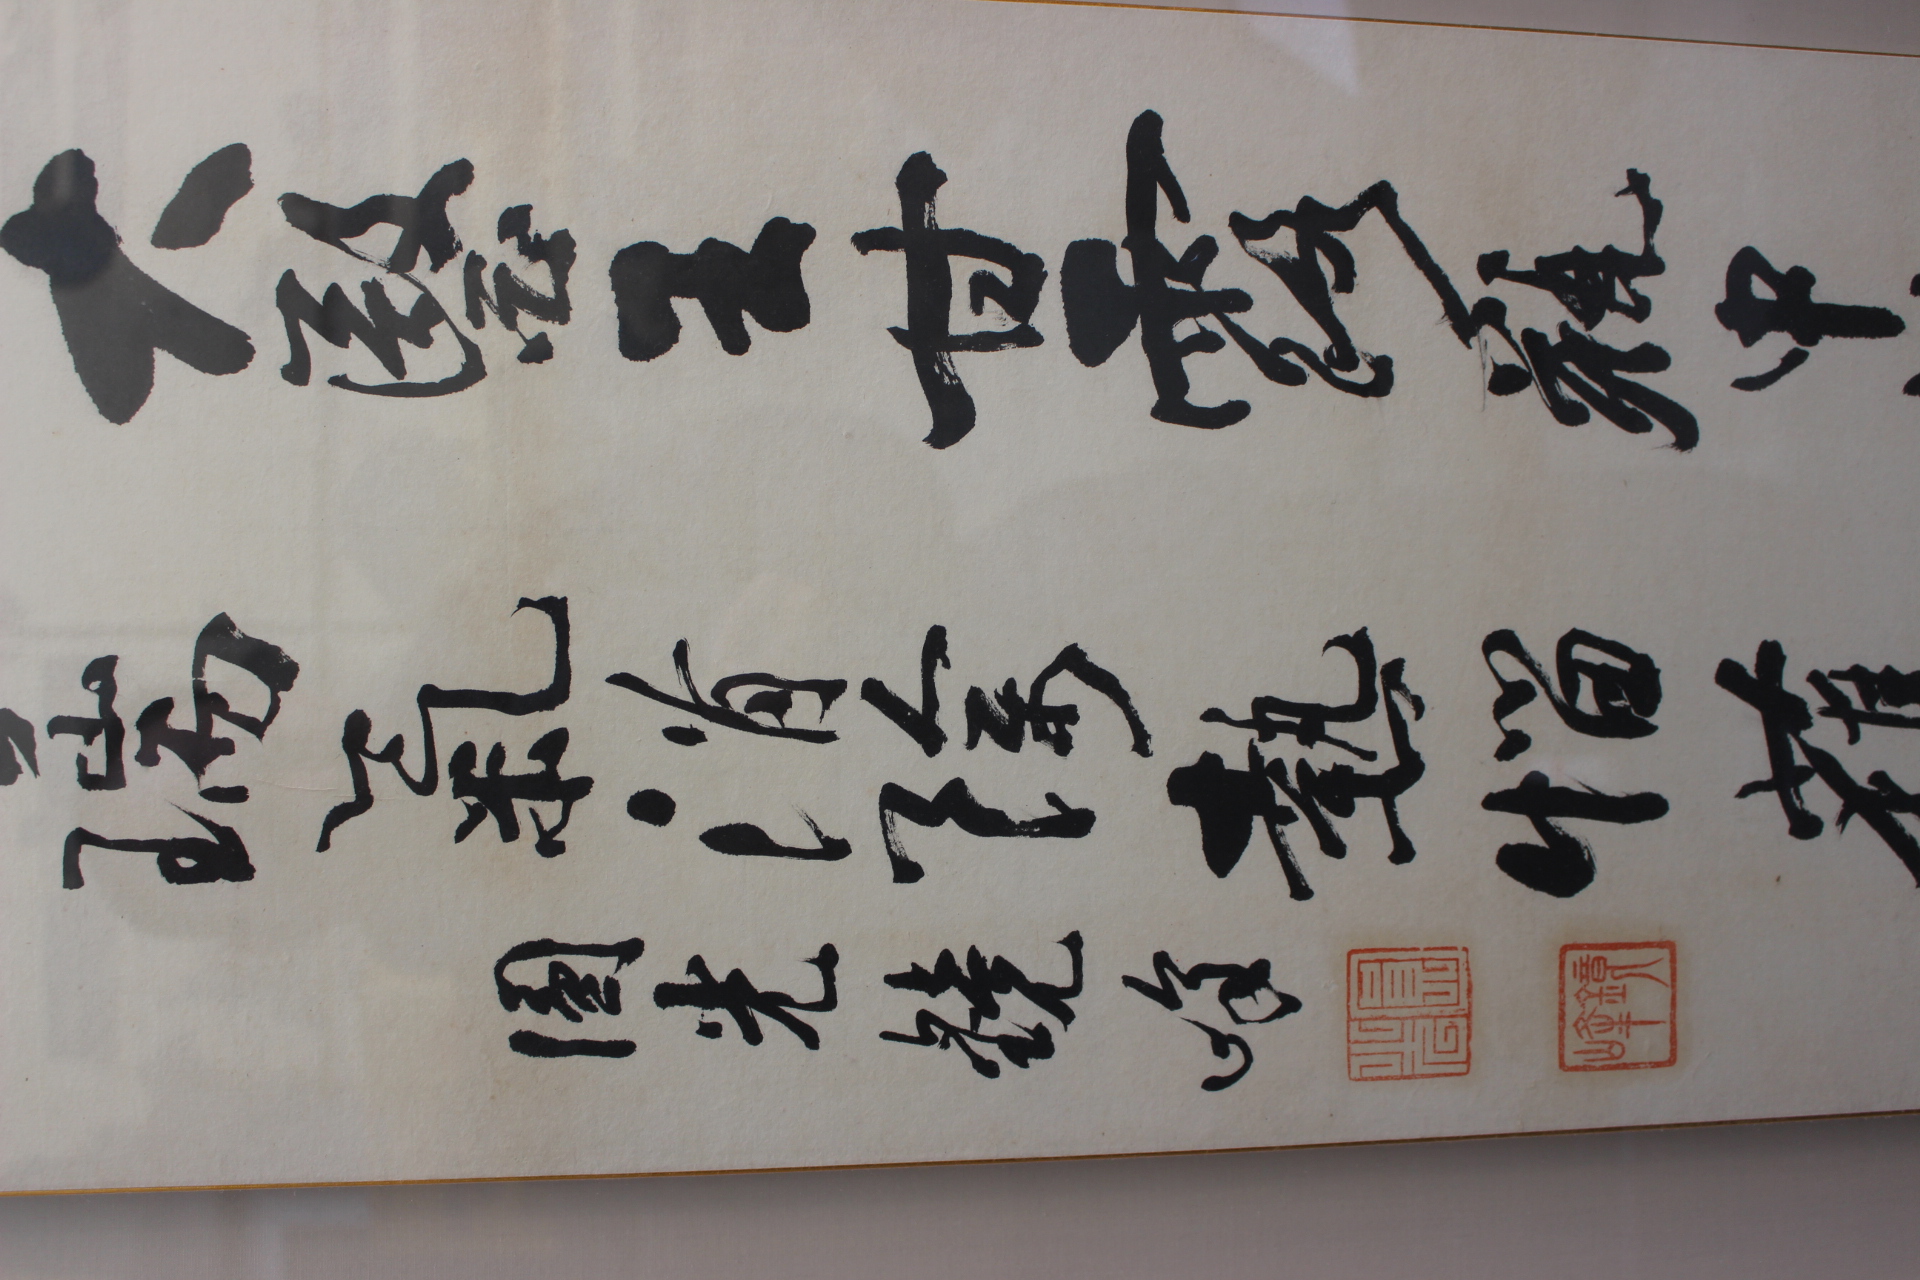 大醫王甘露瓶中
瑞氣消除熱惱獲
圓光鏡峰
圓光
鏡峰